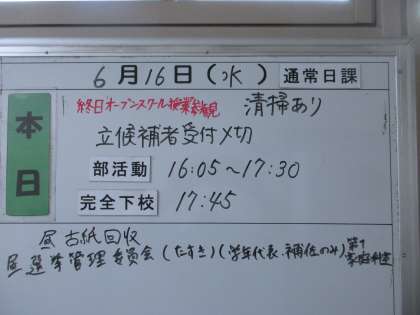 6月16日(水) 通常日課
本日
終日オープンスクール授業参観 清掃あり
立候補者受付〆切
部活動 16:05~17:30
完全下校 17:45
昼 古紙回収
昼 選挙管理委員会(たすき)(学年代表、補佐のみ)第1